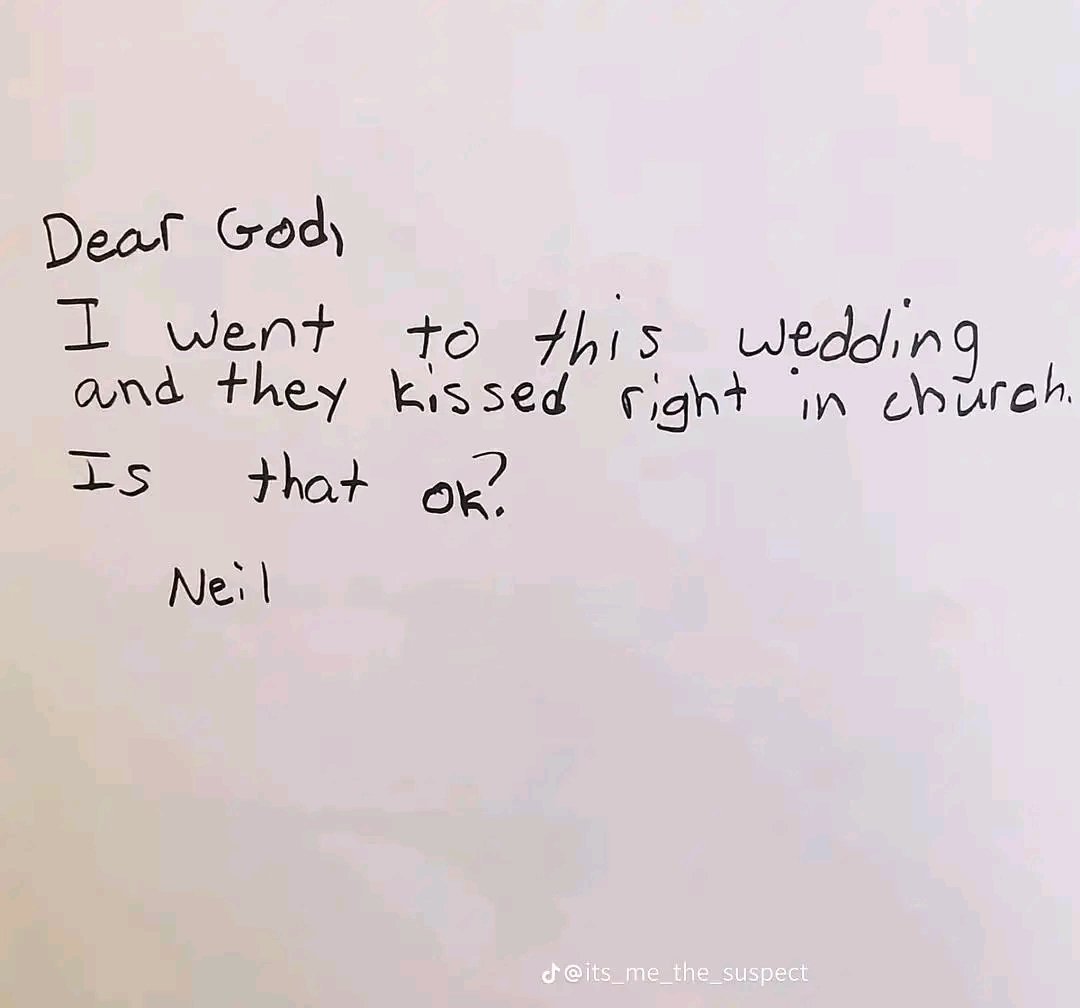 Dear God,
I went to this wedding
and they kissed right in church.
Is that ok?
Neil
@its_me_the_suspect